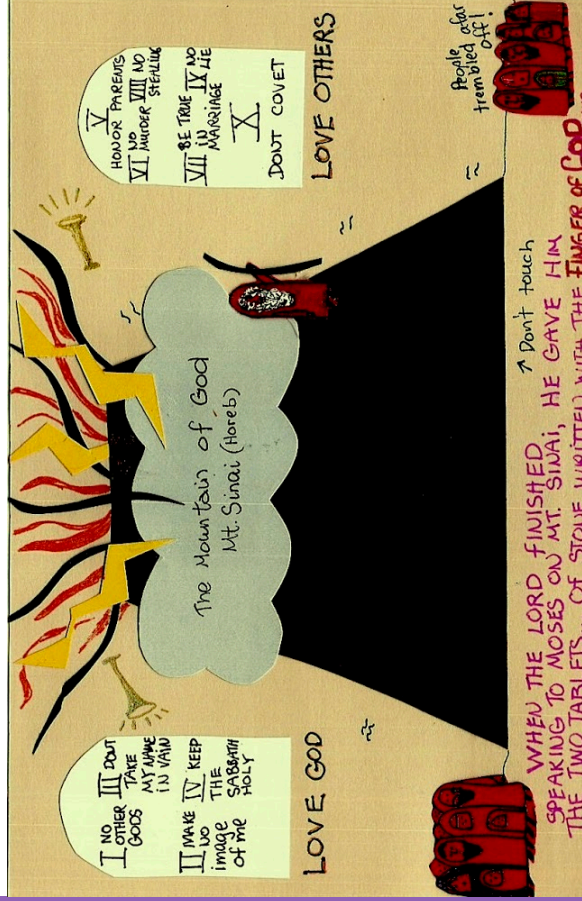 I NO
OTHER
GODS
II MAKE
NO
image
of me
III DONT
TAKE
MY NAME
IN VAIN
IV KEEP
THE
SABBATH
HOLY
LOVE GOD
The Mountain of God
Mt. Sinai (Horeb)
V
HONOR PARENTS
VI NO
MURDER
VIII NO
STEALING
VII BE TRUE
IN
MARRIAGE
IX NO
LIE
X
DONT COVET
LOVE OTHERS
People
trembled afar
off!
↗ Don't touch
WHEN THE LORD FINISHED
SPEAKING TO MOSES ON MT. SINAI, HE GAVE HIM
THE TWO TABLETS OF STONE WRITTEN WITH THE FINGER OF GOD